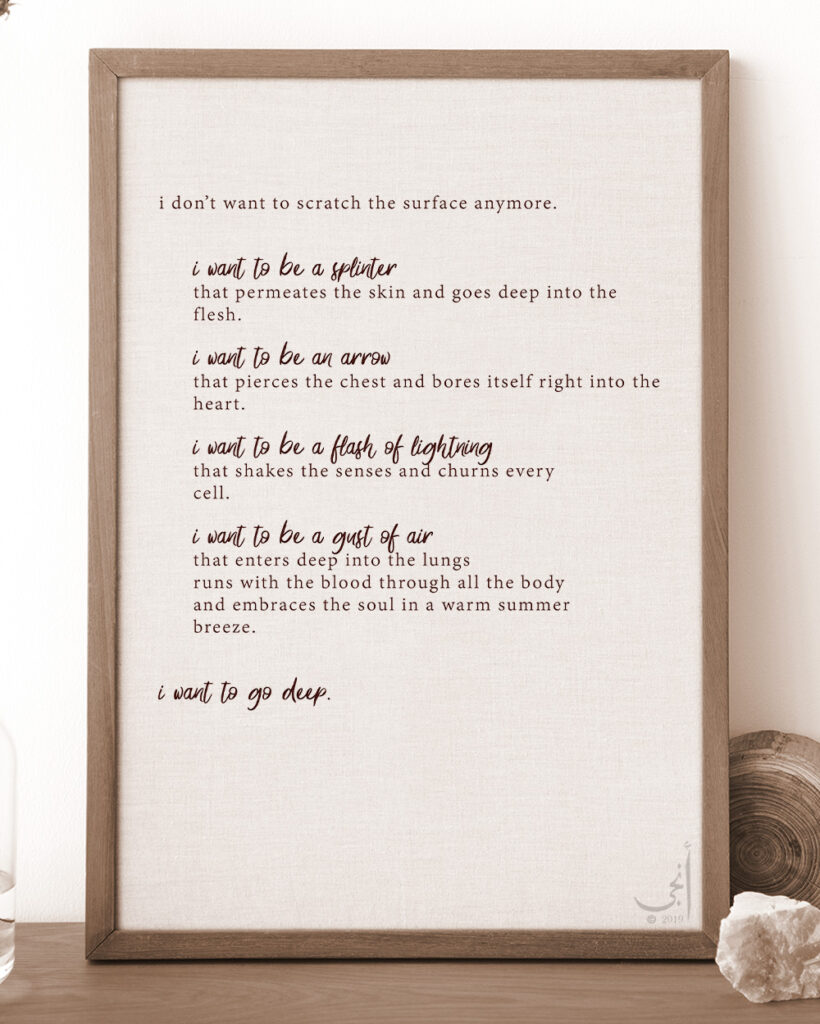 i don’t want to scratch the surface anymore.
i want to be a splinter
that permeates the skin and goes deep into the
flesh.
i want to be an arrow
that pierces the chest and bores itself right into the
heart.
i want to be a flash of lightning
that shakes the senses and churns every
cell.
i want to be a gust of air
that enters deep into the lungs
runs with the blood through all the body
and embraces the soul in a warm summer
breeze.
i want to go deep.
© 2019